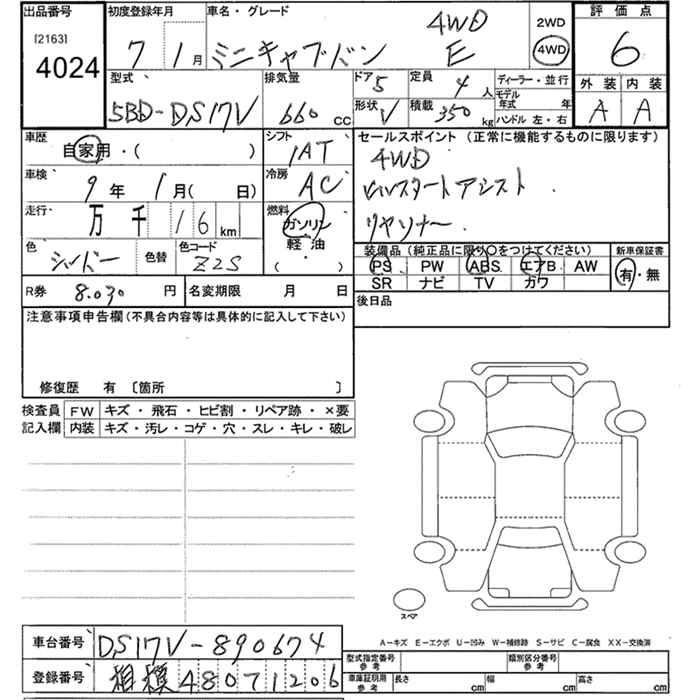 出品番号 初度登録年月 車名・グレード 評価点
[2163] 4WD 2WD
4024 7 1月 ミニキャブバン E 4WD 6
型式 排気量 ドア 5 定員 4人 ディーラー・並行 外装 内装
5BD-DS17V 660 cc 形状 V 積載 350 kg モデル年式 年 A A
ハンドル 左・右
車歴 シフト セールスポイント (正常に機能するものに限ります)
自家用・( ) 1AT 4WD
車検 冷房 ヒルスタートアシスト
9年 1月( 日) AC リヤソナー
走行 燃料
万 千 16 km ガソリン
色 色替 色コード 軽・油 装備品 (純正品に限り○をつけてください) 新車保証書
シルバー Z2S ・ PS PW ABS エアB AW 有・無
( ) SR ナビ TV カワ
R券 8.030 円 名変期限 月 日 後日品
注意事項申告欄(不具合内容等は具体的に記入して下さい)
修復歴 有 〔箇所 〕
検査員 FW キズ・飛石・ヒビ割・リペア跡・×要
記入欄 内装 キズ・汚レ・コゲ・穴・スレ・キレ・破レ
スペア
A-キズ E-エクボ U-凹み W-補修跡 S-サビ C-腐食 XX-交換済
車台番号 DS17V-890674
型式指定番号 参考 類別区分番号 参考
登録番号 相模 480 71206
車庫証明用 参考 長さ cm 幅 cm 高さ cm